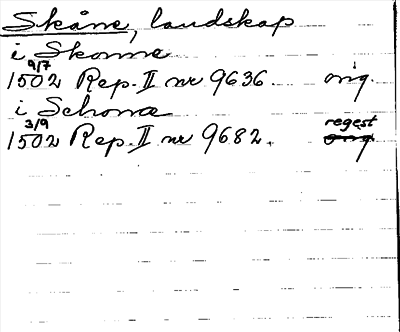 Skåne, landskap
i Skonne
9/7
1502 Rep. II nr 9636. orig.
i Schona
3/9 regest
1502 Rep. II nr 9682. orig